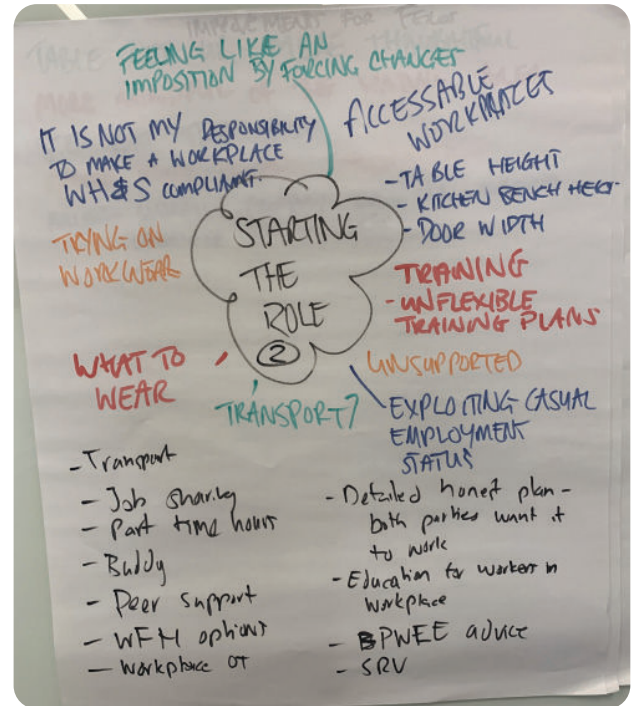 FEELING LIKE AN
IMPOSITION BY FORCING CHANGES
IT IS NOT MY RESPONSIBILITY
TO MAKE A WORKPLACE
WH&S COMPLIANT.
ACCESSABLE
WORKPLACES
- TABLE HEIGHT
- KITCHEN BENCH HEIGHT
- DOOR WIDTH
TRYING ON
WORKWEAR
STARTING
THE
ROLE
2
TRAINING
- UNFLEXIBLE
TRAINING PLANS
WHAT TO
WEAR
UNSUPPORTED
TRANSPORT?
EXPLOITING CASUAL
EMPLOYMENT
STATUS
- Transport
- Job sharing
- Part time hours
- Buddy
- Peer support
- WFH options
- Workplace OT
- Detailed honest plan -
both parties want it
to work
- Education for workers in
workplace
- PWEE advice
- SRV